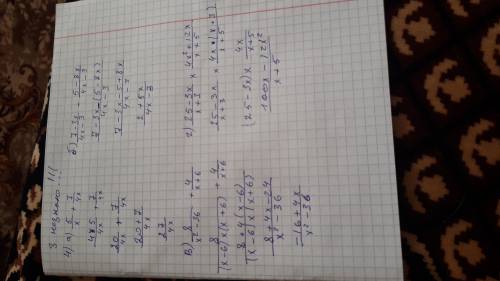 3 незнаю...!!!
4) а) 5/x + 7/4x
4×5/4x 7/4x
20/4x + 7/4x
20+7/4x
27/4x
б) 7-3x/4x-3 - 5-8x/4x-3
7-3x-(5-8x)/4x-3
7-3x-5+8x/4x-3
2+5x/4x-3
в) 8/x²-36 + 4/x+6
8/(x-6)×(x+6) + 4/x+6
8+4(x-6)/(x-6)×(x+6)
8+4x-24/x²-36
-16+4x/x²-36
г) 25-3x/x+3 × 4x²+12x/x+5
25-3x/x+3 × 4x×(x+3)/x+5
(25-3x)× 4x/x+5
100x-12x²/x+5